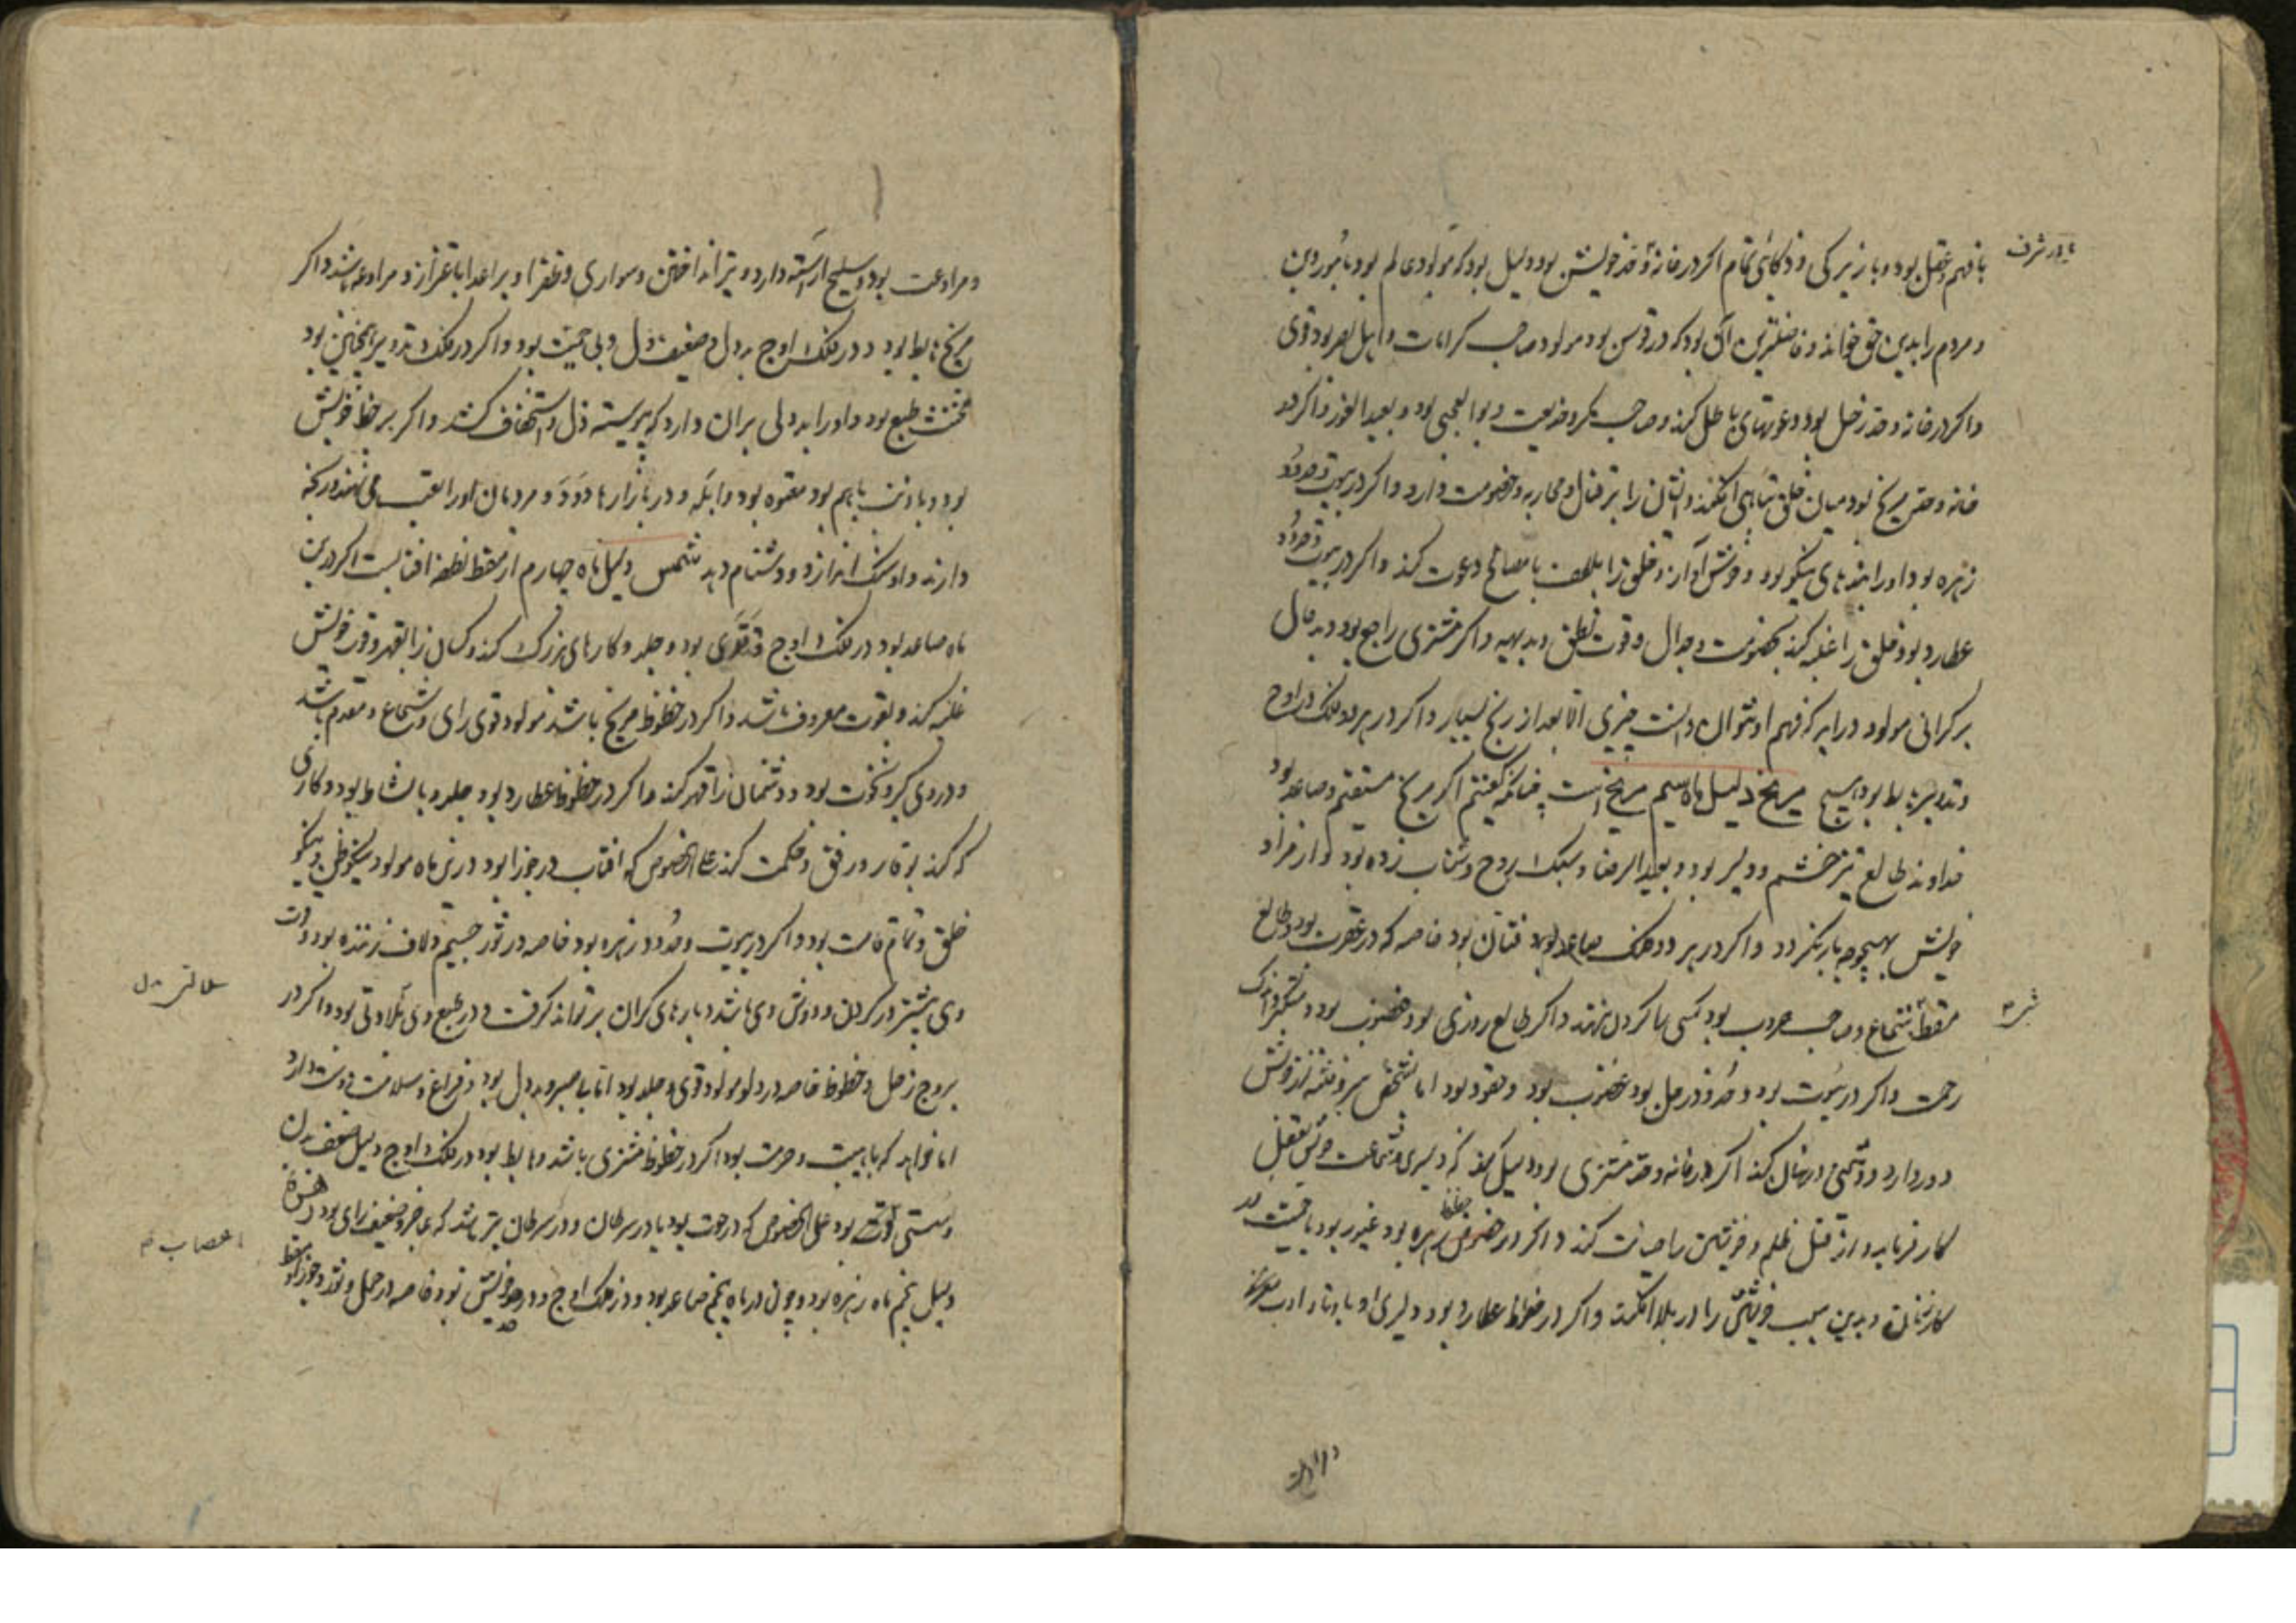 یا در شرف
با فهم و عقل بود و با زیرکی و ذکای تمام اگر در خانه و حد خویش بود دلیل بود که مولودی عالم بود بامور دین
و مردم را بدین حق خواند و فاضلترین آن بود که در قوس بود مولود صاحب کرامات و اهل بصر بود قوی
و اگر در خانه و حد زحل بود دعوتهای باطل کند و صاحب مکر و خدیعت و بوالعجبی بود و بعید الغور و اگر در
خانه و حد مریخ بود میان خلق تباهی افکند و ایشان را بر قتال و محاربه و خصومت دارد و اگر در بیوت و حدود
زهره بود او را پندهای نیکو بود و خوش آواز و خلق را بلطف با مصالح دعوت کند و اگر در بیوت و حدود
عطارد بود خلق را غلبه کند بخصومت و جدال و قوت نطق و بدیهه و اگر مشتری راجع بود و بد حال
بر گرانی مولود در ایر که فهم او نتوان دانست چیزی الا بعد از رنج بسیار و اگر در هر دو فلک در اوج
و تدویر هابط بود همین مریخ دلیل ماه سیم مریخ است چنانکه گفتیم اگر مریخ مستقیم و صاعد بود
خداوند طالع تیز خشم و دلیر بود و بعید الرضا و سبک روح و شتاب زده بود و از مراد
خویش بهیچوجه باز نگردد و اگر در هر دو فلک صاعد بود فتان بود خاصه که در عقرب بود و طالع
سقط شجاع و صاحب حروب بود کسی را گردن ننهد و اگر طالع روزی بود غضوب بود و متکبر و اندک
رحمت و اگر در بیوت بود و حدود زحل بود غضوب بود و حقود بود اما خشم بیرون نیفکند از خویش
دور دارد و دشمنی در نهان کند اگر در خانه و حد مشتری بود دلیل کند که دلیری و شجاعت خویش بعقل
کار فرماید و از قبل ظلم و خویشتن را صیانت کند و اگر در حظوظ زهره بود غیور بود با حمیت
کار زنان و بدین سبب خویشتن را در بلا افکند و اگر در حظوظ عطارد بود دلیری او با و ادب
و مراوغت بود و سلیح آراسته دارد و تیر انداختن و سواری و ظفر او بر اعدا باغترار و مراوغه باشد و اگر
مریخ هابط بود در فلک اوج بد دل و ضعیف دل و بی حمیت بود و اگر در فلک تدویر همچنین بود
مخنث طبع بود و او را بد دلی بران دارد که پیوسته ذل و استخفاف کشد و اگر بر حظ خویش
بود و با ذنب باهم بود معتوه بود و ابله و در بازارها دود و مردمان او را لعب می نهند و رنجه
دارند و او سنگ اندازد و دشنام دهد شمس دلیل ماه چهارم از سقط نطفه آفتابست اگر درین
ماه صاعد بود در فلک اوج قد قوی بود و جلد و کارهای بزرگ کند و کسان را بقهر و قوت خویش
غلبه کند و بقوت معروف باشد و اگر در حظوظ مریخ باشد مولود قوی رای و شجاع و مقدم باشد
و در وی کبر و نخوت بود و دشمنان را قهر کند و اگر در حظوظ عطارد بود جلد و با نشاط بود و کاری
که کند بوقار و رفق و حکمت کند علی الخصوص که آفتاب در جوزا بود درین ماه مولود نیکو خلق و نیکو
خلق و تمام قامت بود و اگر در بیوت و حدود زهره بود خاصه در ثور جسیم و لاف زننده بود و قوت
وی بیشتر در گردن و دوش وی باشد و بارهای گران بر تواند گرفت و در طبع وی بلادتی بود و اگر در
بروج زحل و حظوظ خاصه در دلو مولود قوی و جلد بود اما با صبر و بد دل بود و فراغ و سلامت دوست دارد
اما خواهد که با هیبت و حرمت بود اگر در حظوظ مشتری باشد و هابط بود در فلک و اوج دلیل ضعف بدن
و سستی قوت بود علی الخصوص که در حوت بود یا در سرطان و در سرطان بتر باشد که عاجز و ضعیف رای بود زهره
دلیل پنجم ماه زهره بود و چون در ماه پنجم صاعد بود در فلک اوج و در حد خویش بود خاصه در حمل و ثور و جوزا
اعصاب